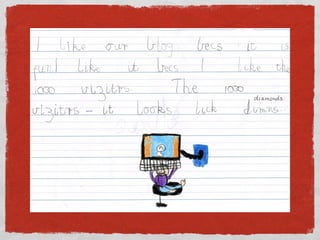 I like our blog becs it is
fun I like it becs I like the
1000 vizitrs. The 1000
diamonds
vizitrs - it looks lick dimns.